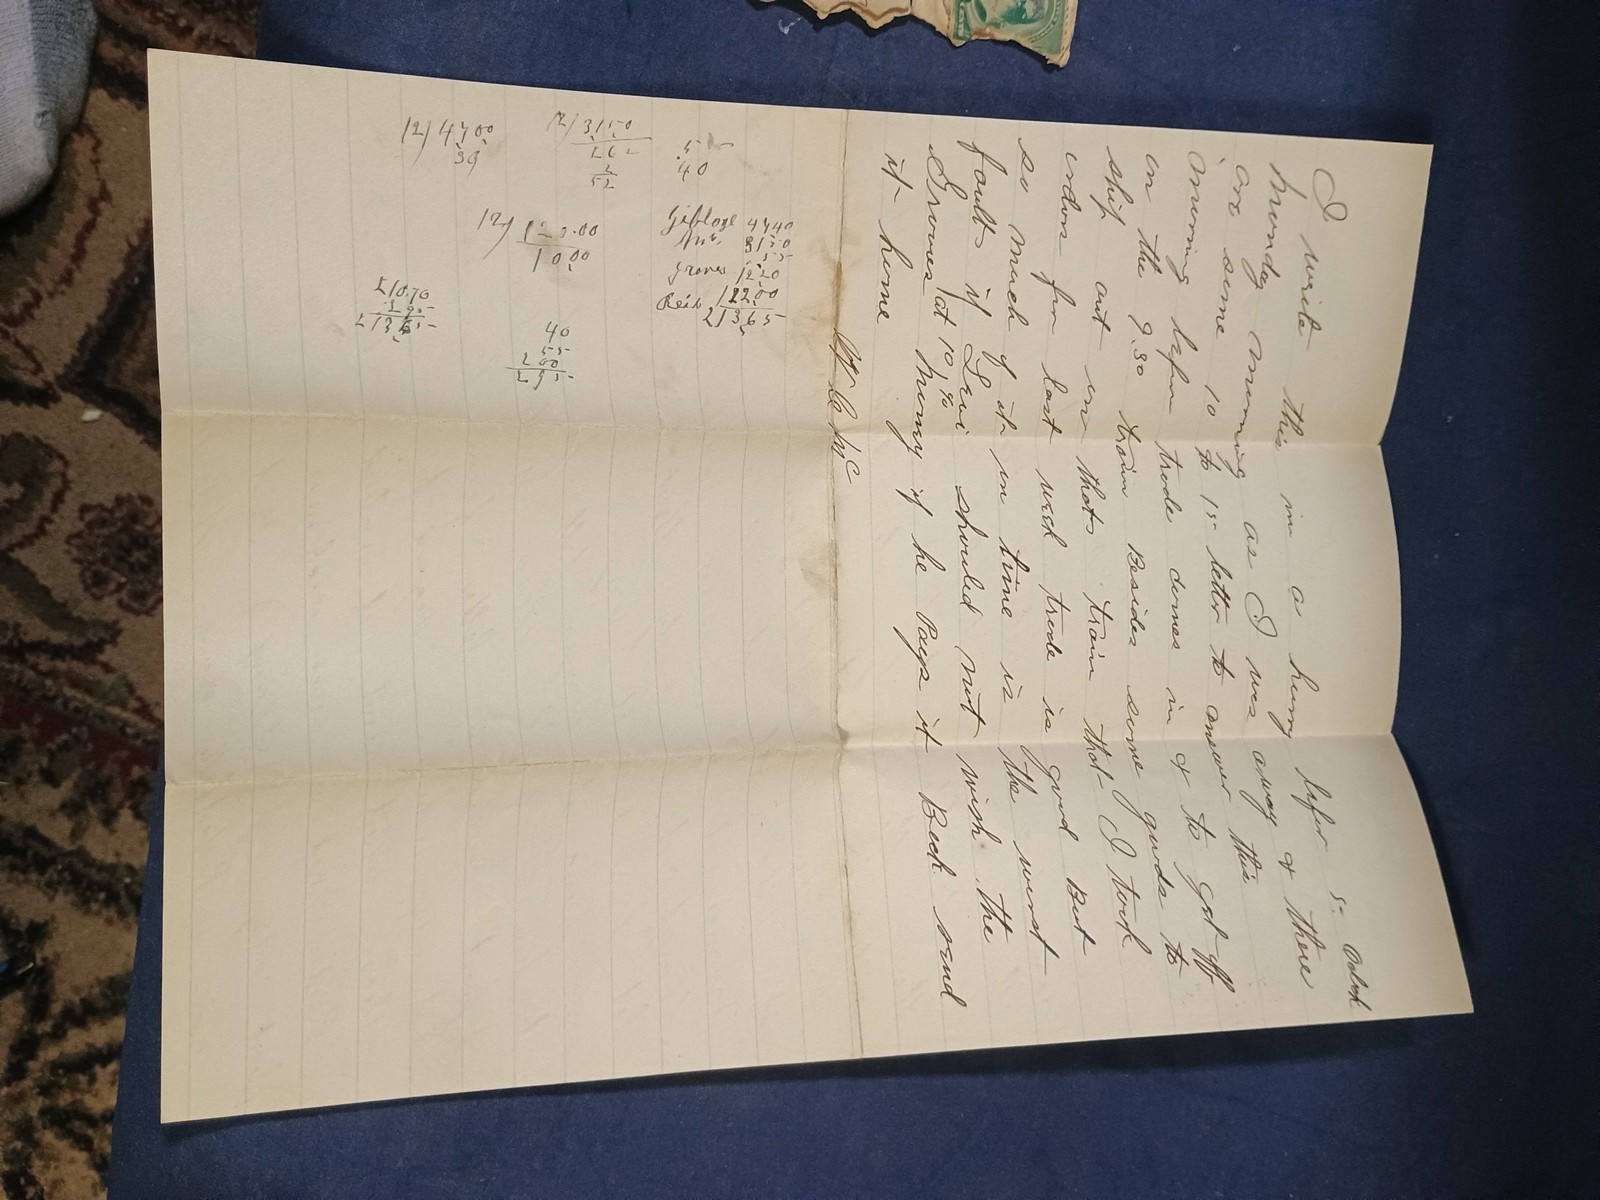 I write this in a hurry befor 5- Oclock
Munday morning as I was away & there
are some 10 to 15- letter to answer this
morning befor trade comes in & to get off
on the 9.30 train Besides some goods to
ship out on that train that I took
orders for last week trade is good But
so much of it on time is the worst
fault if Levi should not wish the
Groves money if he Pays it Back send
at 10%
it home
12) 4700
39
12) 3150
262
2
52
40
12)
1000
4740
3150
55
Groves 1220
12200
21365
21070
295
21365
40
55
200
295